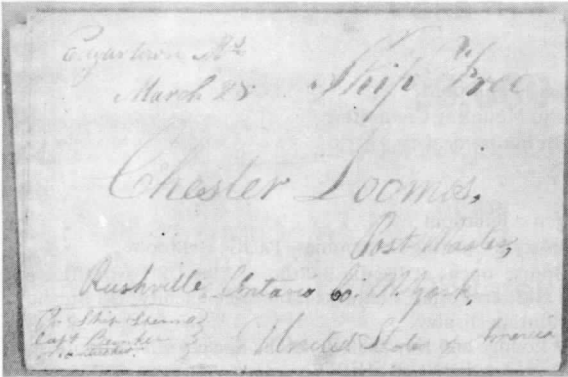 Edgartown Ms
March 28 Ship Free
Chester Loomis,
Post Master,
Rushville, Ontario Co. N. York,
United States of America
Pr Ship
Capt